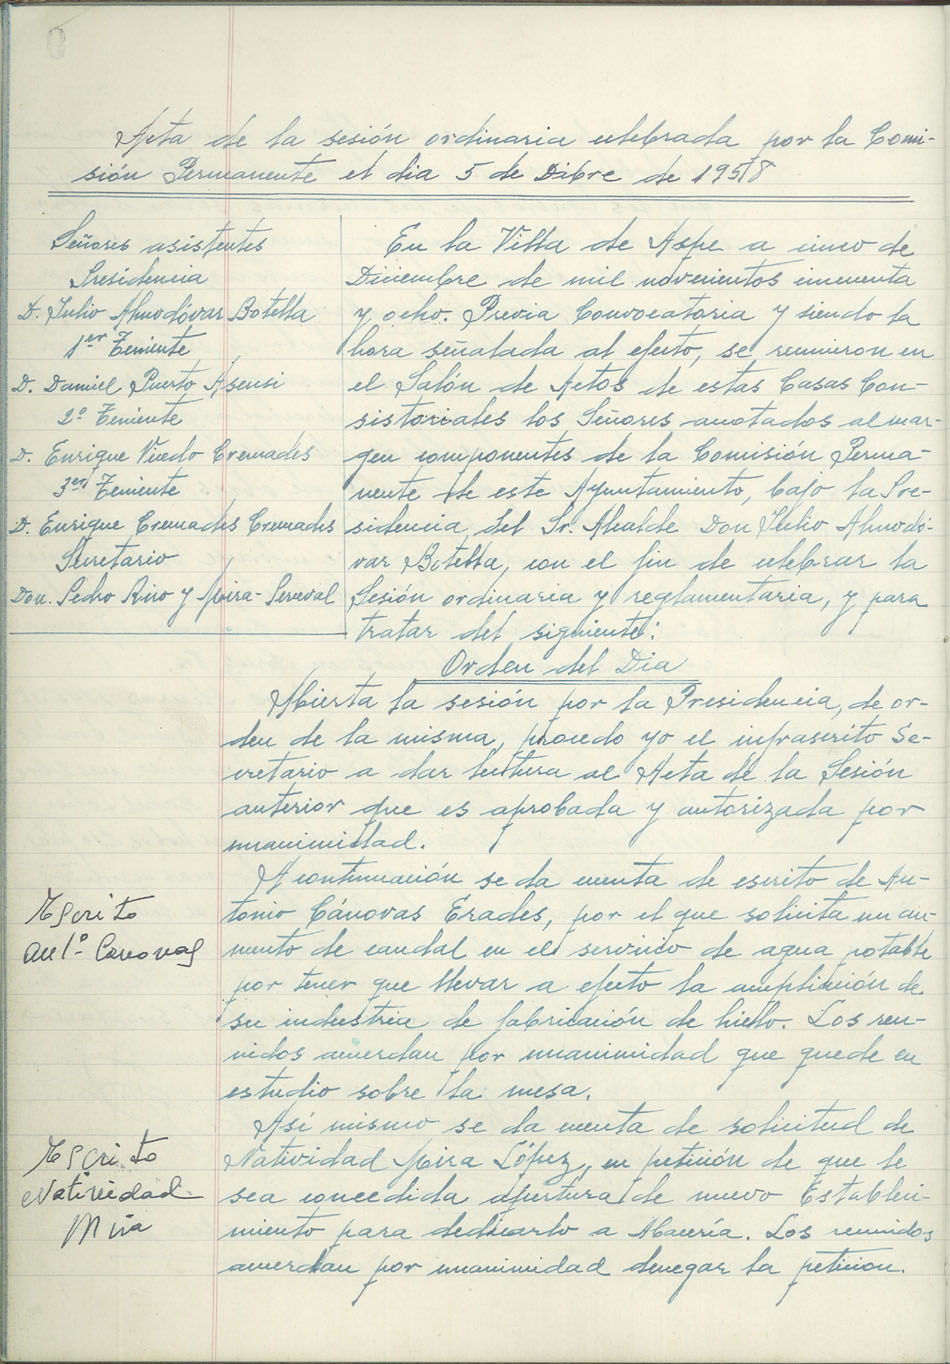 Acta de la sesión ordinaria celebrada por la Comi-
sión Permanente el dia 5 de Dibre de 1958
Señores asistentes
Presidencia
D. Julio Almodóvar Botella
1er Teniente
D. Daniel Puerto Asensi
2º Teniente
D. Enrique Cremades
3er Teniente
D. Enrique Cremades Cremades
Secretario
Don. Pedro y Mira-Perceval
En la Villa de Aspe a cinco de
Diciembre de mil novecientos cincuenta
y ocho. Previa Convocatoria y siendo la
hora señalada al efecto, se reunieron en
el Salón de Actos de estas Casas Con-
sistoriales los Señores anotados al mar-
gen componentes de la Comisión Perma-
nente de este Ayuntamiento, bajo la Pre-
sidencia del Sr. Alcalde Don Julio Almodó-
var Botella, con el fin de celebrar la
Sesión ordinaria y reglamentaria, y para
tratar del siguiente:
Orden del Dia
Abierta la sesión por la Presidencia, de or-
den de la misma, procedo yo el infrascrito Se-
cretario a dar lectura al Acta de la Sesión
anterior que es aprobada y autorizada por
unanimidad.
A continuación se da cuenta de escrito de An-
tonio Cánovas Erades, por el que solicita un au-
mento de caudal en el servicio de agua potable
por tener que llevar a efecto la ampliación de
su industria de fabricación de hielo. Los reu-
nidos acuerdan por unanimidad que quede en
estudio sobre la mesa.
Escrito
Antº Canovas
Así mismo se da cuenta de solicitud de
Natividad Mira López, en petición de que le
sea concedida apertura de nuevo Estableci-
miento para dedicarlo a Abacería. Los reunidos
acuerdan por unanimidad denegar la peticion.
Escrito
Natividad
Mira